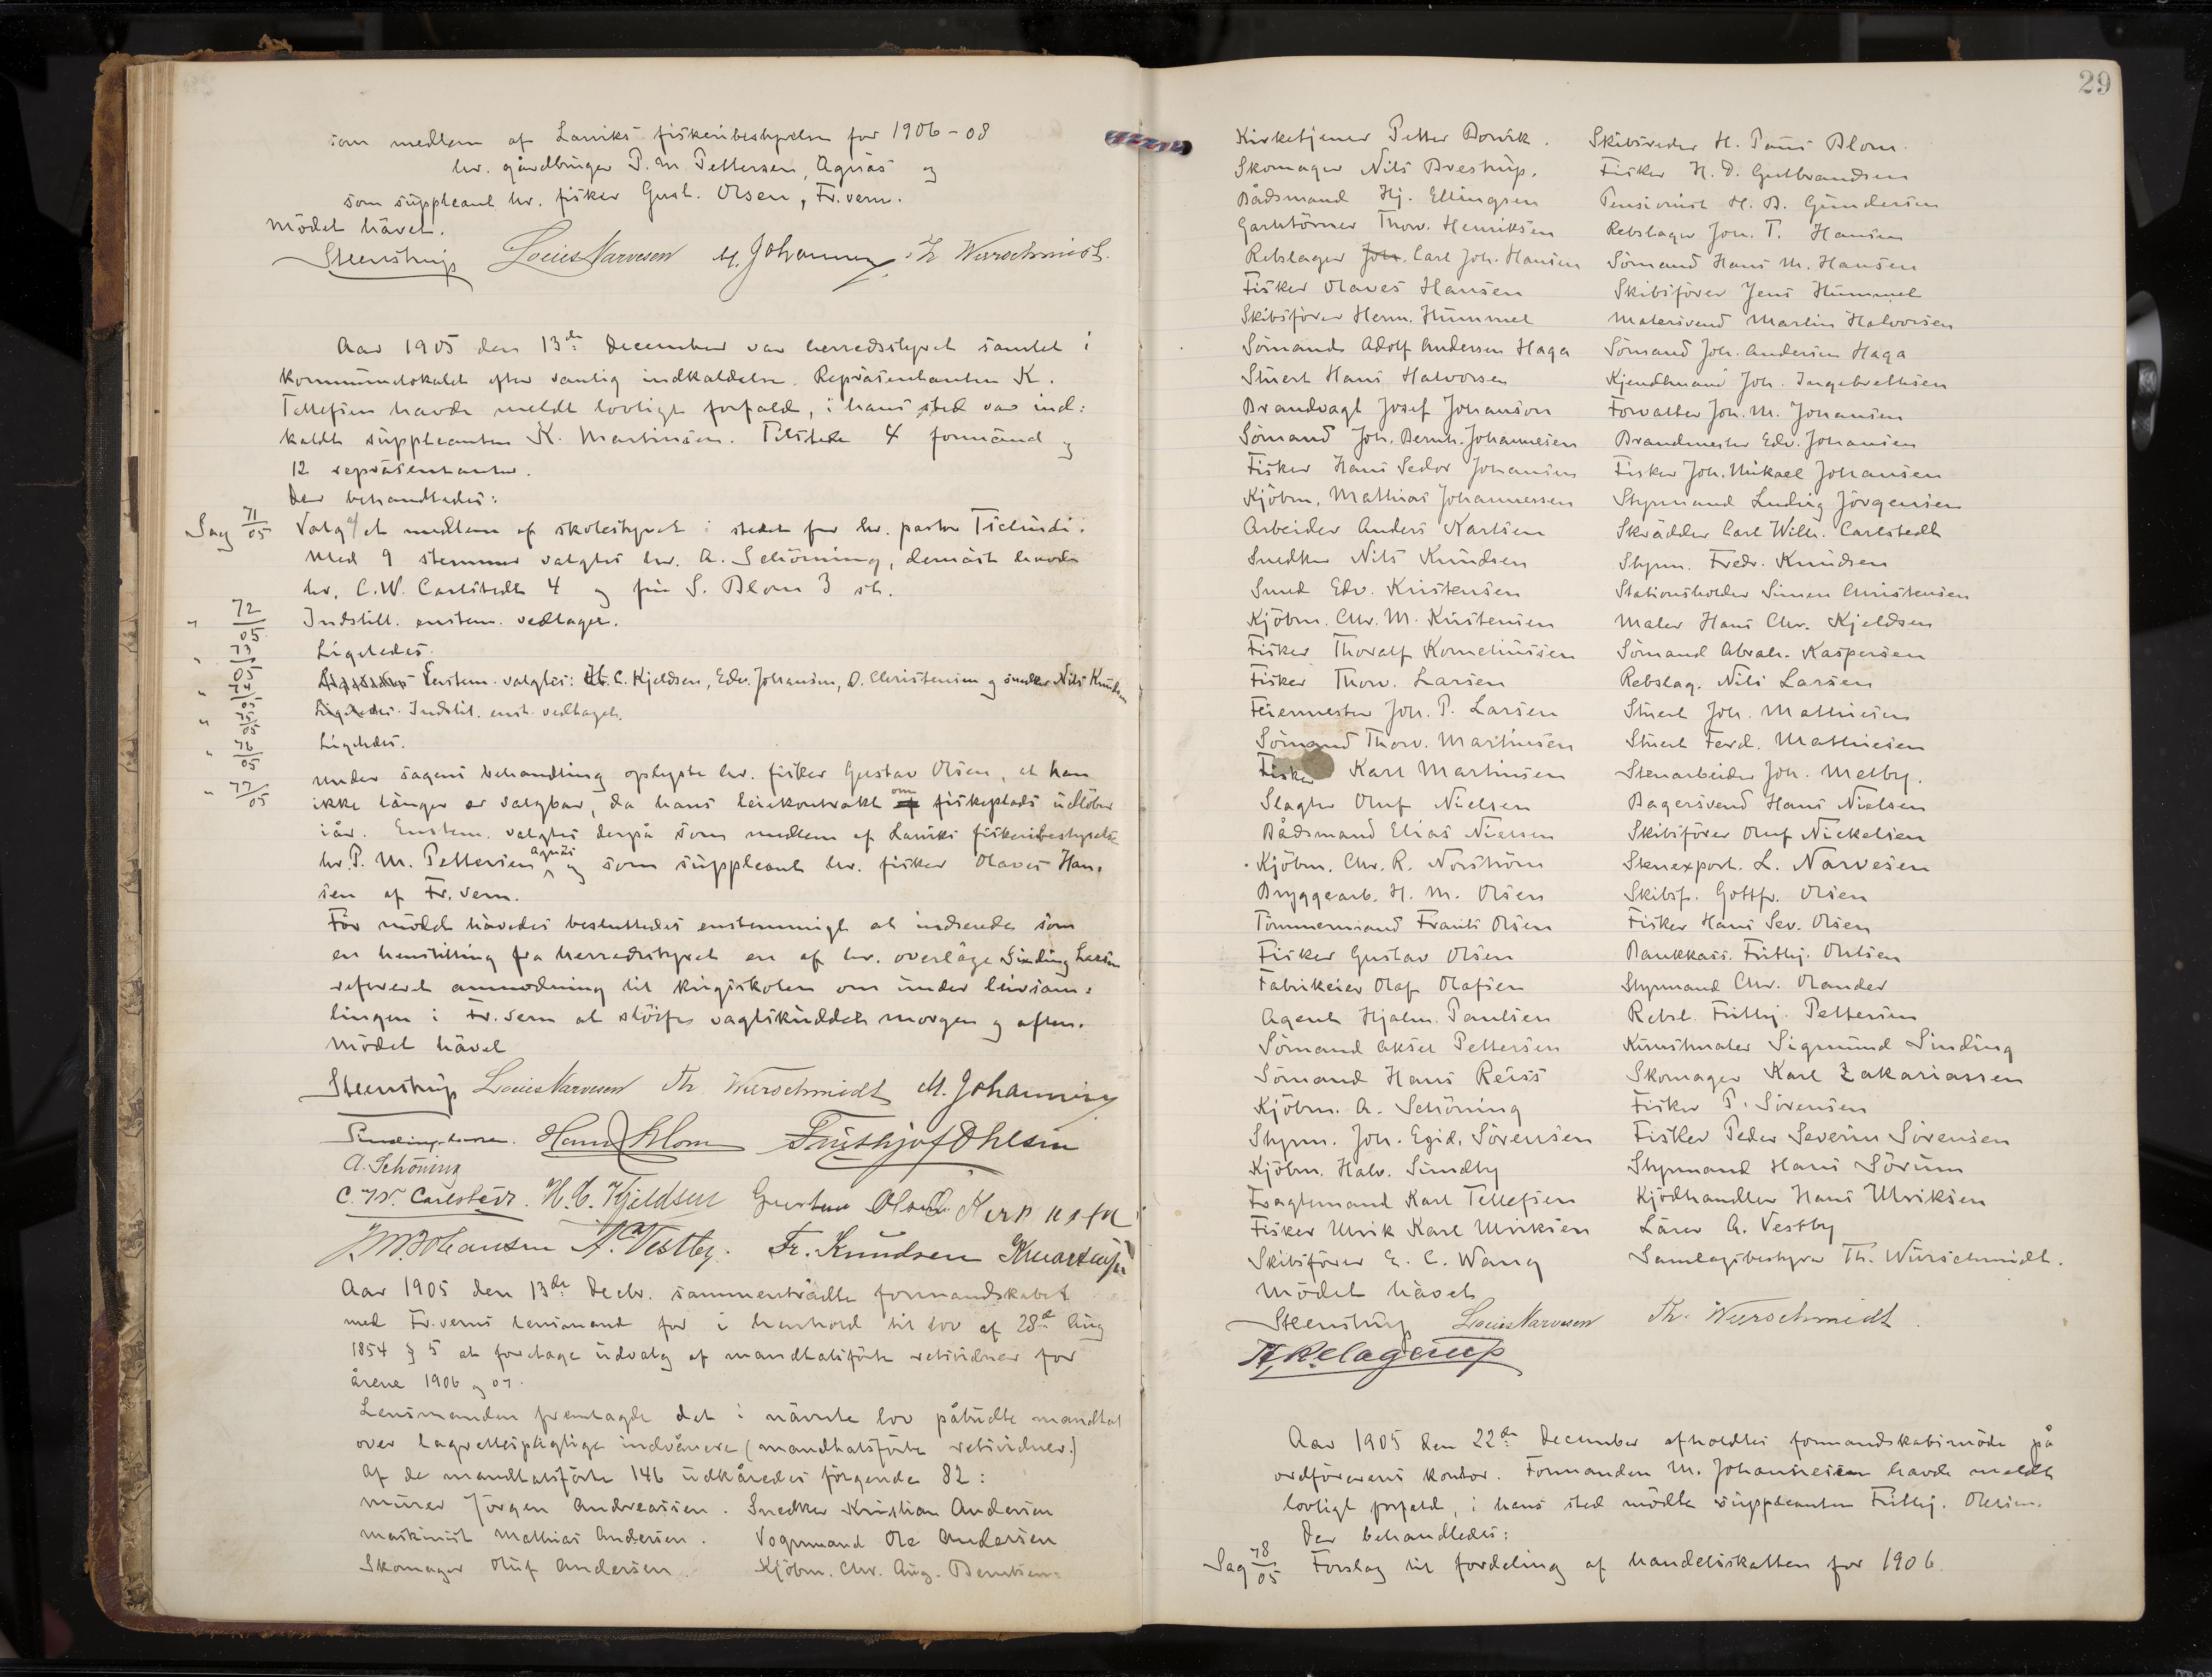 som medlem af Larviks fiskeribestyrelse for 1906-08
hr. gårdbruger P. M. Pettersen, Agnäs og
som suppleant hr. fisker Gust. Olsen, Fr.vern.
Mödet hävet.
Steenstrup Louis Narvesen M. Johannesen Th Würschmidt.
Aar 1905 den 13de december var herredsstyret samlet i
kommunelokalet efter vanlig indkaldelse. Repräsentanten K.
Tellefsen havde meldt lovligt forfald, i hans sted var ind:
kaldt suppleanten K. Martinsen. Tilstede 4 formänd og
12 repräsentanter.
Der behandledes:
Sag 71/05 Valg af et medlem af skolestyret i stedet for hr. pastor Tschudi.
Med 9 stemmer valgtes hr. A. Schöning, dernäst havde
hr. C. W. Carlstedt 4 og fru S. Blom 3 st.
" 72/05 Indstill. enstem. vedtaget.
" 73/05 Ligeledes.
" 74/05 Ligeledes Enstem. valgtes: H. C. Kjeldsen, Edv. Johansen, O. Christensen og snedker Nils Knudsen
" 75/05 Ligeledes. Indstil. enst. vedtaget.
" 76/05 Ligeledes.
" 77/05 Under sagens behandling oplyste hr. fisker Gustav Olsen, at han
ikke länger er valgbar, da hans leiekontrakt af om fiskeplads udlöber
iår. Enstem. valgtes derpå som medlem af Larviks fiskeribestyrelse
hr. P. M. Pettersen Agnäs og som suppleant hr. fisker Olaves Han:
sen af Fr.vern.
För mödet hävedes besluttedes enstemmigt at indsende som
en henstilling fra herredsstyret en af hr. overläge Sinding Larsen
refereret anmodning til krigsskolen om under leirsam:
lingen i Fr.vern at slöife vagtskuddet morgen og aften.
Mödet hävet
Steenstrup Louis Narvesen Th Würschmidt M. Johannesen
Sinding-Larsen. Hans Blom Frithjof Ohlsen
A. Schöning
C. W. Carlstedt. H. C. Kjeldsen Gustav Olsen
J. M. Johansen A. Vestby. Fr. Knudsen K Martinsen
Aar 1905 den 13de decbr. sammentrådte formandskabet
med Fr.verns lensmand for i henhold til lov af 28de Aug
1854 § 5 at foretage udvalg af mandtalsförte retsvidner for
årene 1906 og 07.
Lensmanden fremlagde det i nävnte lov påbudte mandtal
over lagrettespligtige indvånere (mandtalsförte retsvidner.)
Af de mandtalsförte 146 udkåredes fölgende 82:
Murer Jörgen Andreassen. Snedker Kristian Andersen
Maskinist Mathias Andersen. Vognmand Ole Andersen
Skomager Oluf Andersen. Kjöbm. Chr. Aug. Berntsen
29
Kirketjener Petter Borvik. Skibsreder H. Paus Blom.
Skomager Nils Brestrup. Fisker H. D. Gulbrandsen
Bådsmand Hj. Ellingsen Pensionist H. B. Gundersen
Gartnörner Thorv. Henriksen Rebslager Joh. T. Hansen
Rebslager Joh. Carl Joh. Hansen Sömand Hans M. Hansen
Fisker Olaves Hansen Skibsförer Jens Hummel
Skibsförer Herm. Hummel Malersvend Martin Halvorsen
Sömand Adolf Andersen Haga Sömand Joh. Andersen Haga
Stuert Hans Halvorsen Kjendtmand Joh. Ingebrethsen
Brandvagt Josef Johanson Forvalter Joh. M. Johansen
Sömand Joh. Bernh. Johannesen Brandmester Edv. Johansen
Fisker Hans Sedor Johansen Fisker Joh. Mikael Johansen
Kjöbm. Mathias Johannessen Styrmand Ludvig Jörgensen
Arbeider Anders Karlsen Skrädder Carl Wilh. Carlstedt
Snedker Nils Knudsen Styrm. Fredr. Knudsen
Smed Edv. Kristensen Stationsholder Simen Christensen
Kjöbm. Chr. M. Kristensen Maler Hans Chr. Kjeldsen
Fisker Thoralf Korneliussen Sömand Abrah. Kaspersen
Fisker Thorv. Larsen Rebslag. Nils Larsen
Feiermester Joh. P. Larsen Stuert Joh. Mathisen
Sömand Thorv. Martinsen Stuert Ferd. Mathiesen
Fisker Karl Martinsen Stenarbeider Joh. Melby.
Slagter Oluf Nielsen Bagersvend Hans Nielsen
Bådsmand Elias Nielsen Skibsförer Oluf Nickelsen
Kjöbm. Chr. R. Norström Stenexport. L. Narvesen
Bryggearb. H. M. Olsen Skibsf. Gottfr. Olsen
Tömmermand Frants Olsen Fisker Hans Sev. Olsen
Fisker Gustav Olsen Bankkass. Frithj. Ohlsen
Fabrikeier Olaf Olafsen Styrmand Chr. Olander
Agent Hjalm. Paulsen Rebsl. Frithj. Pettersen
Sömand Aksel Pettersen Kunstmaler Sigmund Sinding
Sömand Hans Reiss Skomager Karl Zakariassen
Kjöbm. A. Schöning Fisker P. Sörensen
Styrm. Joh. Egid. Sörensen Fisker Peder Severin Sörensen
Kjöbm. Halv. Sundby Styrmand Hans Sörum
Fragtemand Karl Tellefsen Kjödhandler Hans Ulriksen
Fisker Ulrik Karl Ulriksen Lärer A. Vestby
Skibsförer E. C. Wang Samlagsbestyrer Th. Würschmidt.
Mödet hävet
Steenstrup Louis Narvesen Th. Würschmidt.
Aar 1905 den 22de december afholdtes formandskabsmöde på
ordförerens kontor. Formanden M. Johannesen havde meldt
lovligt forfald, i hans sted mödte suppleanten Frithj. Ohlsen.
Der behandledes:
Sag 78/05 Forslag til fordeling af handelsskatten for 1906.